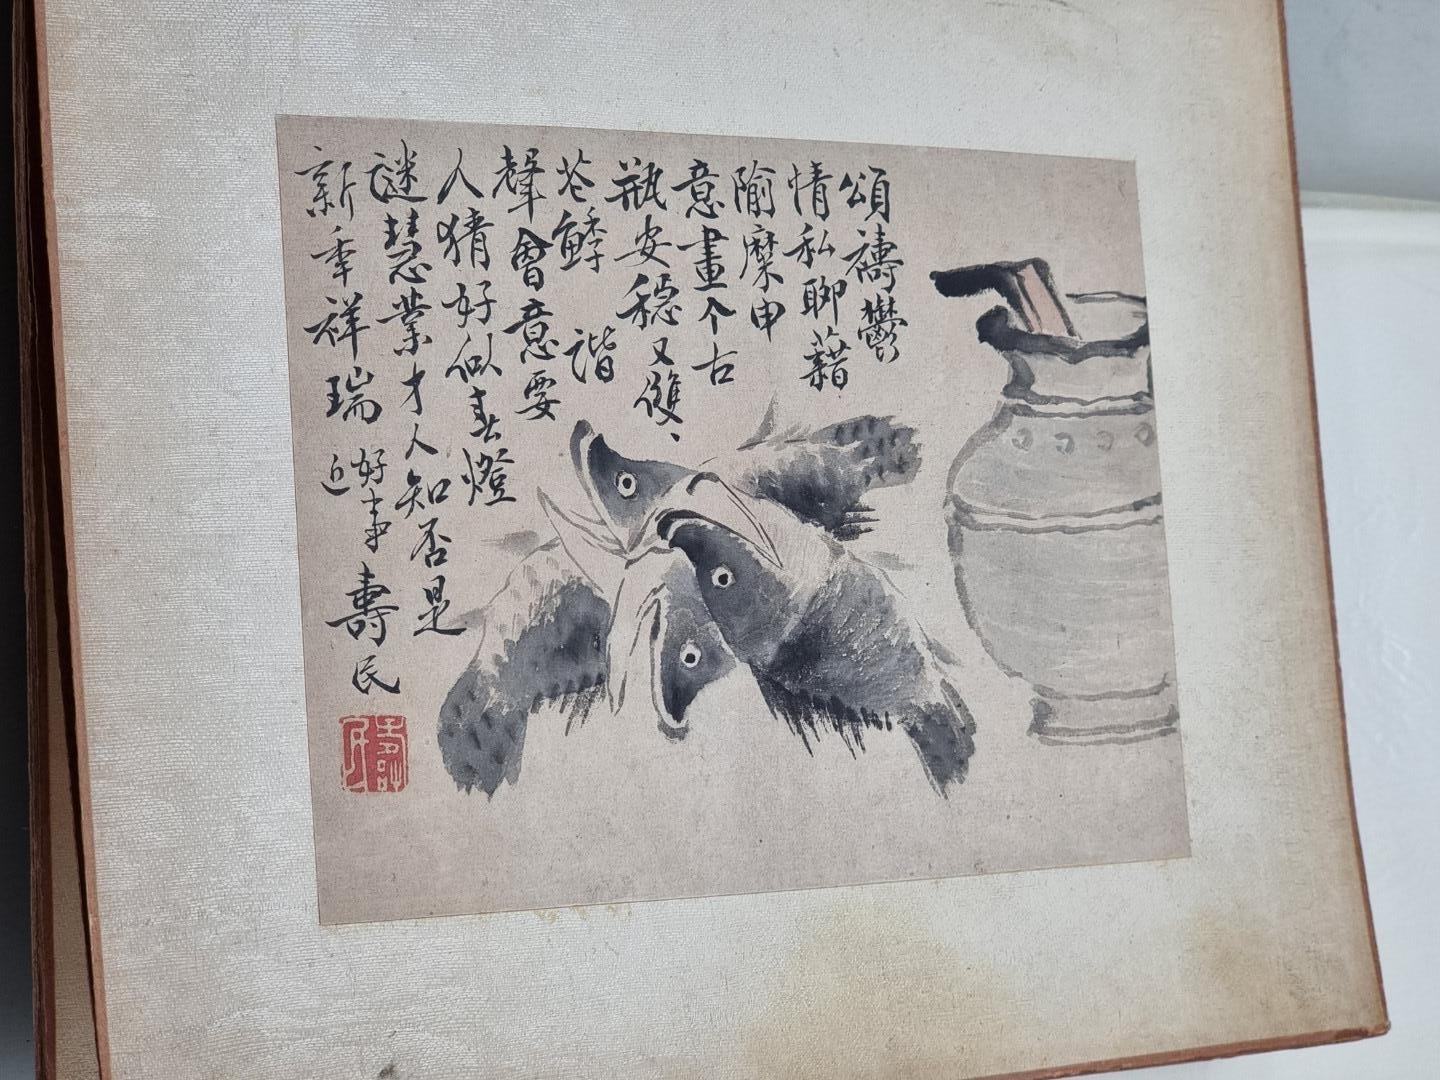 頌禱鬱
情私聊藉
隃麋申
意畫个古
瓶安穩又雙、
芲鯚諧
聲會意要
人猜好似春燈
謎慧業才人知否是
新秊祥瑞
好事近
壽民
壽民